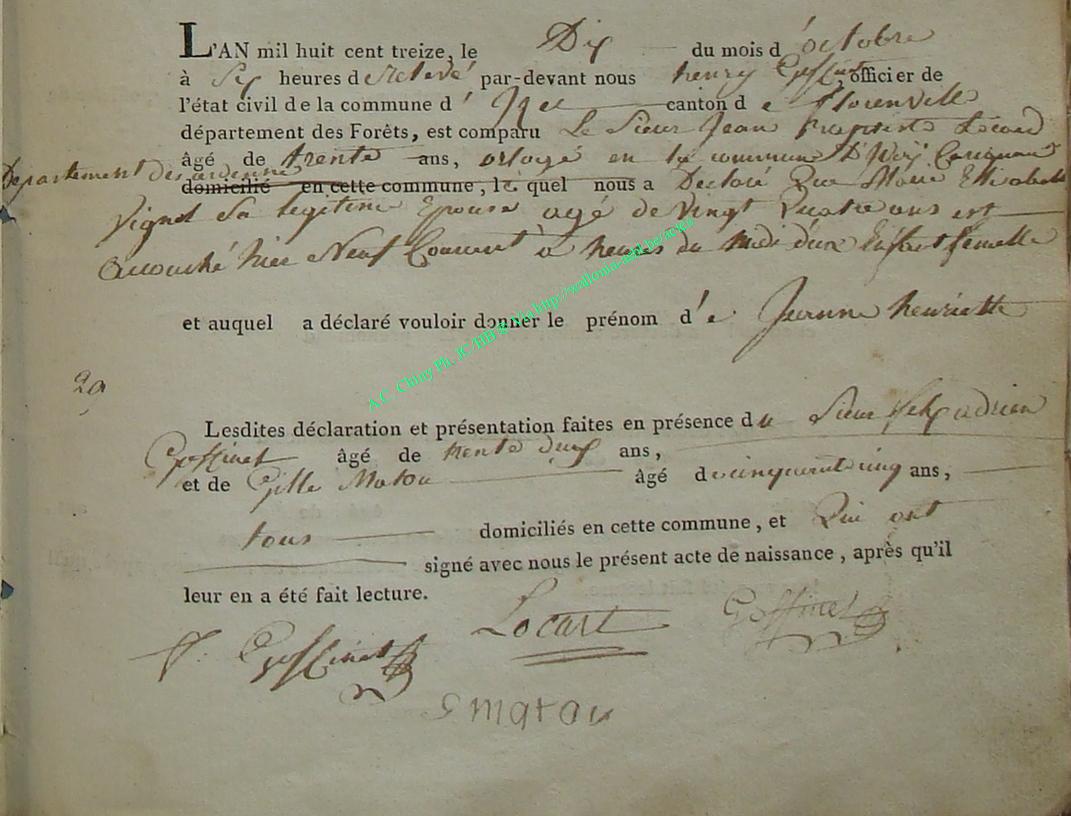 L'AN mil huit cent treize, le Dix du mois d'octobre
à Six heures de relevé par-devant nous henry Goffinet, officier de
l'état civil de la commune d' canton de florenville
département des Forêts, est comparu Le Sieur Jean Baptiste Locard
âgé de trente ans, en la commune D'
Departement des ardenne
domicilié en cette commune, le quel nous a Declaré Que Marie Elisabeth
Vignol Sa legitime Epouse agé de Vingt quatre ans est
accouché hier Neuf Courant à heures du midi d'un Enfant femelle
et auquel a déclaré vouloir donner le prénom d'e Jeanne henriette
29
A.C. Chiny Ph. JC/HB &
Lesdites déclaration et présentation faites en présence du Sieur adrien
Goffinet âgé de trente deux ans,
et de Gille Matou âgé de cinquante cinq ans,
tous domiciliés en cette commune, et Qui ont
signé avec nous le présent acte de naissance, après qu'il
leur en a été fait lecture.
Goffinet Locart Goffinet
G matou